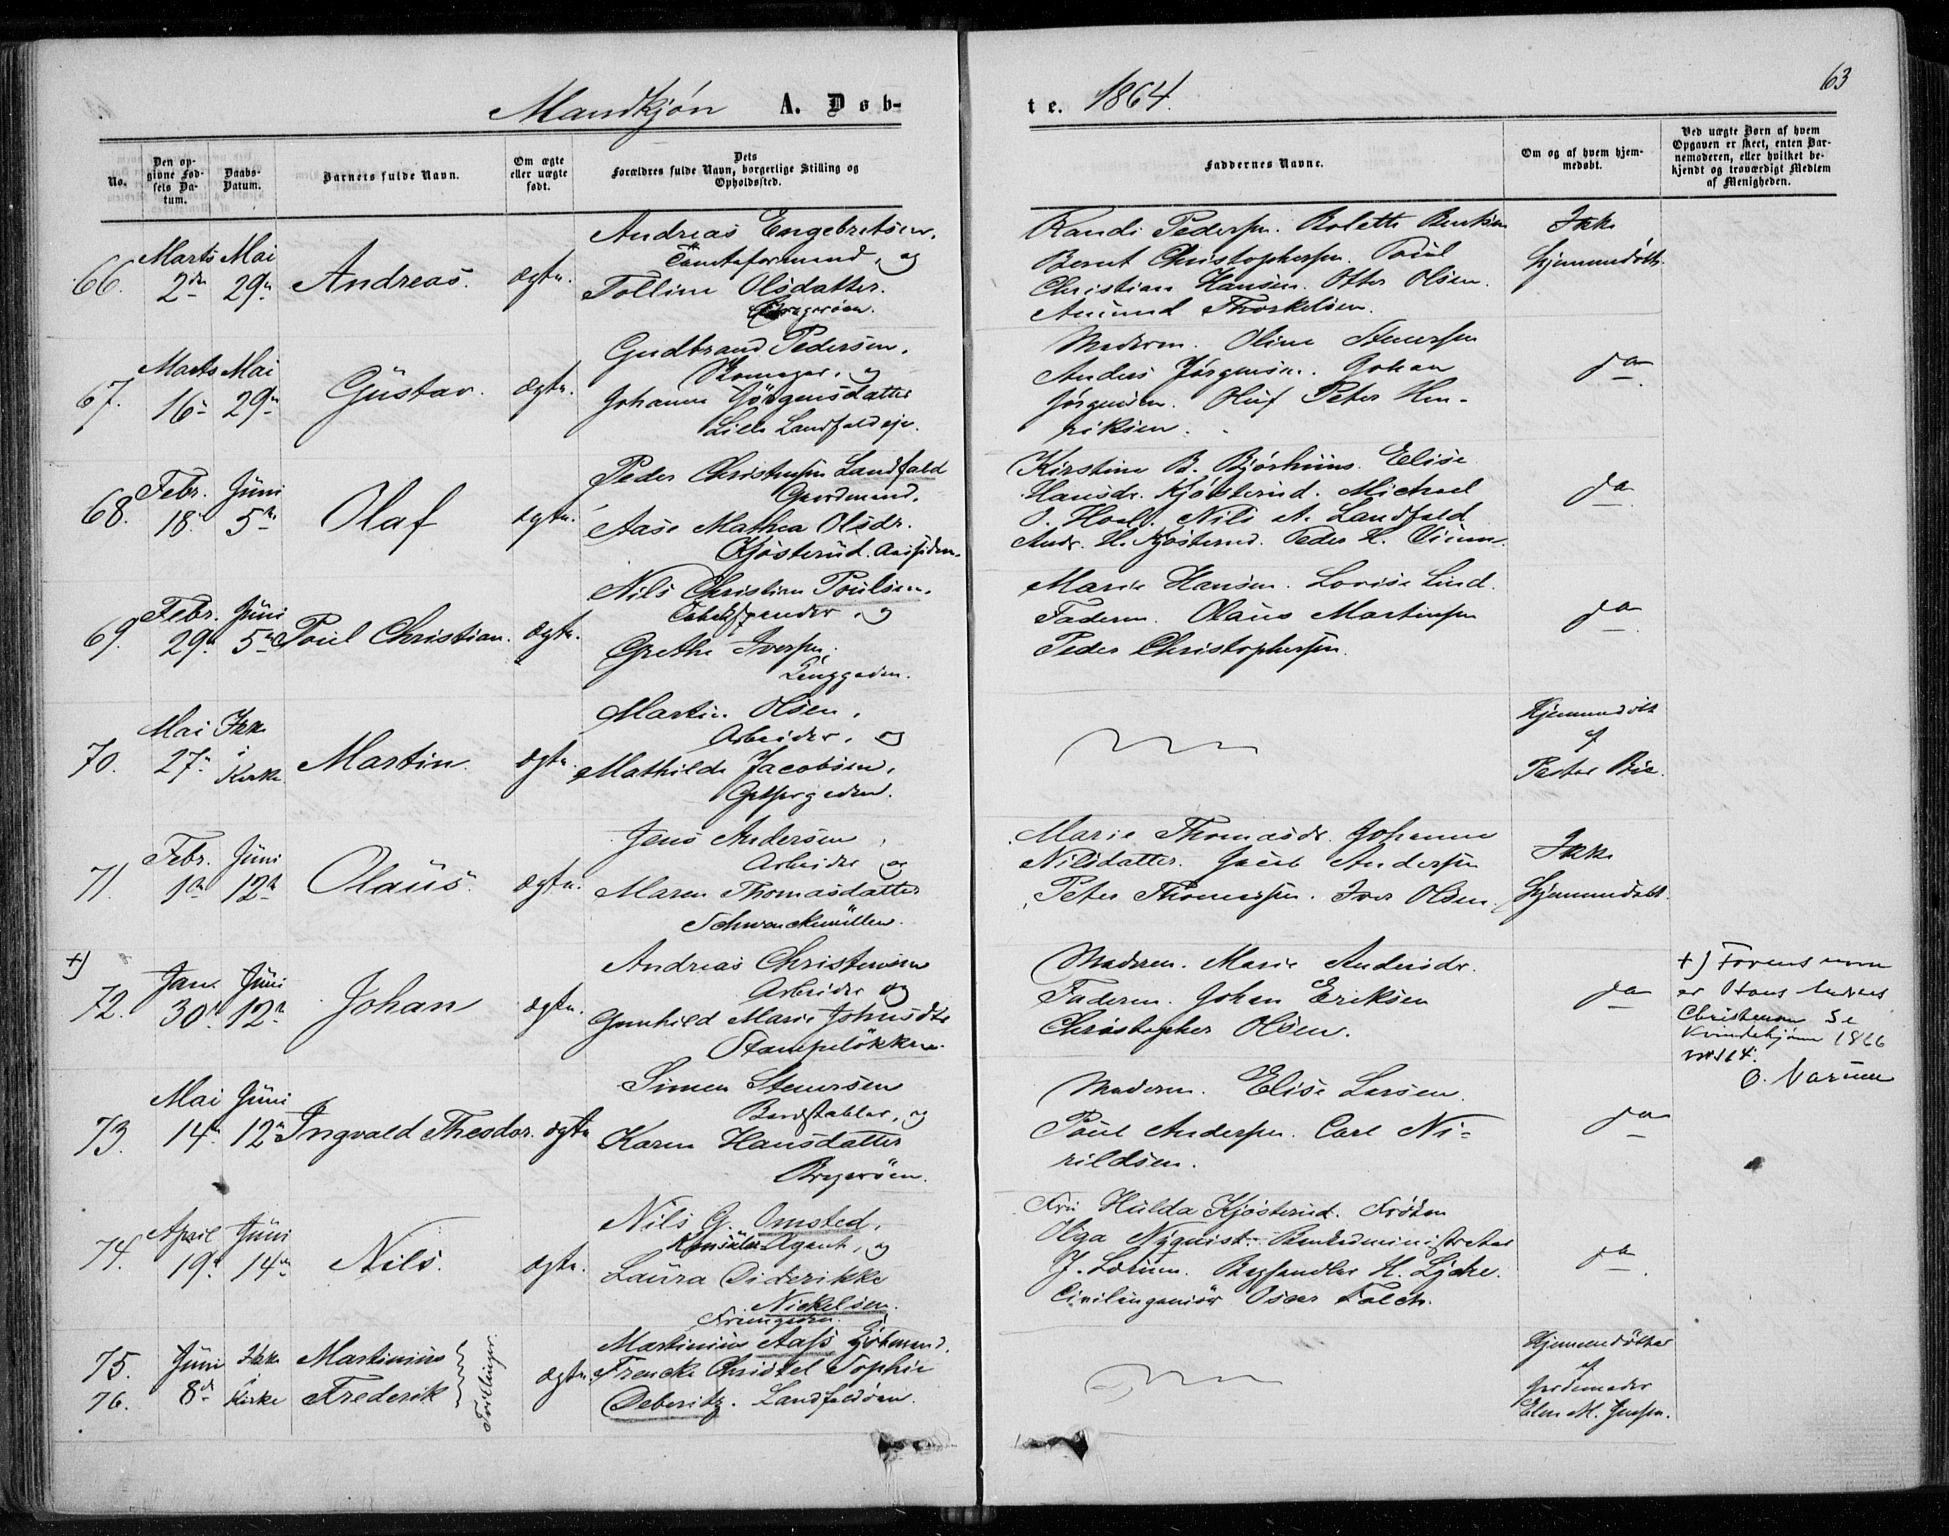 63
Mandkjøn A. Døb-
te. 1864.
No.
Den op-
givne Fød-
sels Da-
tum.
Daabs-
Datum.
Barnets fulde Navn.
Om ægte
eller uægte
født.
Dets
Forældres fulde Navn, borgerlige Stilling og
Opholdssted.
Faddernes Navne.
Om og af hvem hjem-
medøbt.
Ved uægte Børn af hvem
Opgaven er skeet, enten Bar-
nemoderen, eller hvilket be-
kjendt og troværdigt Medlem
af Menigheden.
66.
Marts
2den
Mai
29n
Andreas.
ægte.
Andreas Engebretsen,
Tomteformand, og
Tolline Olsdatter.
Bragerøen.
Randi Pedersen. Bolette Bentsen
Bernt Christophersen. Poul
Christian Hansen. Otter Olsen.
Amund Thorkelsen.
Ikke
hjemmedøbt.
67.
Marts
16n
Mai
29n
Gustav.
ægte.
Gudbrand Pedersen,
Skomager, og
Johanne Jörgensdatter
Lille Landfaldeje.
Moderen. Oline Stenersen
Anders Jørgensen. Johan
Jørgensen. Oluf Peter Hen-
riksen.
do
68.
Febr.
18
Juni
5n
Olaf
ægte.
Peder Christensen Landfald
Gaardmand.
Aase Mathea Olsdr.
Kjøsterud.
Kirstine B. Bjørhuus. Elise
Hansdr. Kjøsterud. Michael
O. Hoel. Nils A. Landfald
Andr. H. Kjøsterud. Peder H.
do
69.
Febr.
29n
Juni
5n
Poul Christian.
ægte.
Nils Christian Poulsen,
Tobakspinder, og
Grethe Iversen.
Marie Hansen. Lovise Lind.
Faderen. Olaus Martinsen
Peder Christophersen.
do
70.
Mai
27n
Ikke
i
Kirke
Martin.
ægte.
Martin Olsen,
Arbeider, og
Mathilde Jacobsen,
Hjemmedøbt
af
Pastor
71.
Febr.
1n
Juni
12n
Olaus.
ægte.
Jens Andersen,
Arbeider og
Maren Thomasdatter
Schwenckemöllen.
Marie Thomasdr. Johanne
Nilsdatter. Jacob Andersen
Peter Thomassen. Iver Olsen.
Ikke
hjemmedøbt.
+)
72.
Jan.
30
Juni
12n
Johan
ægte.
Andreas Christensen
Arbeider og
Gunhild Marie Johnsdtr
Stampeløkken.
Moderen. Marie Andersdr.
Faderen. Johan Eriksen
Christopher Olsen.
do
+) Farens navn
er Hans Andreas
Christensen Se
Kvindekjøn 1866
No 114.
73.
Mai
14n
Juni
12n
Ingvald Theodor.
ægte
Simen Stenersen
Bordstabler, og
Karen Hansdatter
Bragerøen.
Moderen. Elise Larsen.
Poul Andersen. Carl Ni-
rildsen.
do
74.
April
19n
Juni
14n
Nils.
ægte.
Nils G. Omsted,
Konsular Agent, og
Laura Diderikke
Nickelsen.
Fru Hulda Kjøsterud. Frøken
Olga Nyquist. Bankadministrator
J. Lorum. Boghandler H. Lycke.
Civilingeniör Oscar Falch.
do
75.
76.
Juni
8d
Ikke
i
Kirke
Martinius
Frederik
Tvillinger.
ægte.
Martinius Aass
Frencke Christel Sophie
Deberitz. Landfaldøen.
Hjemmedøbte
af
Jordemoder
Elen M. Jensen.